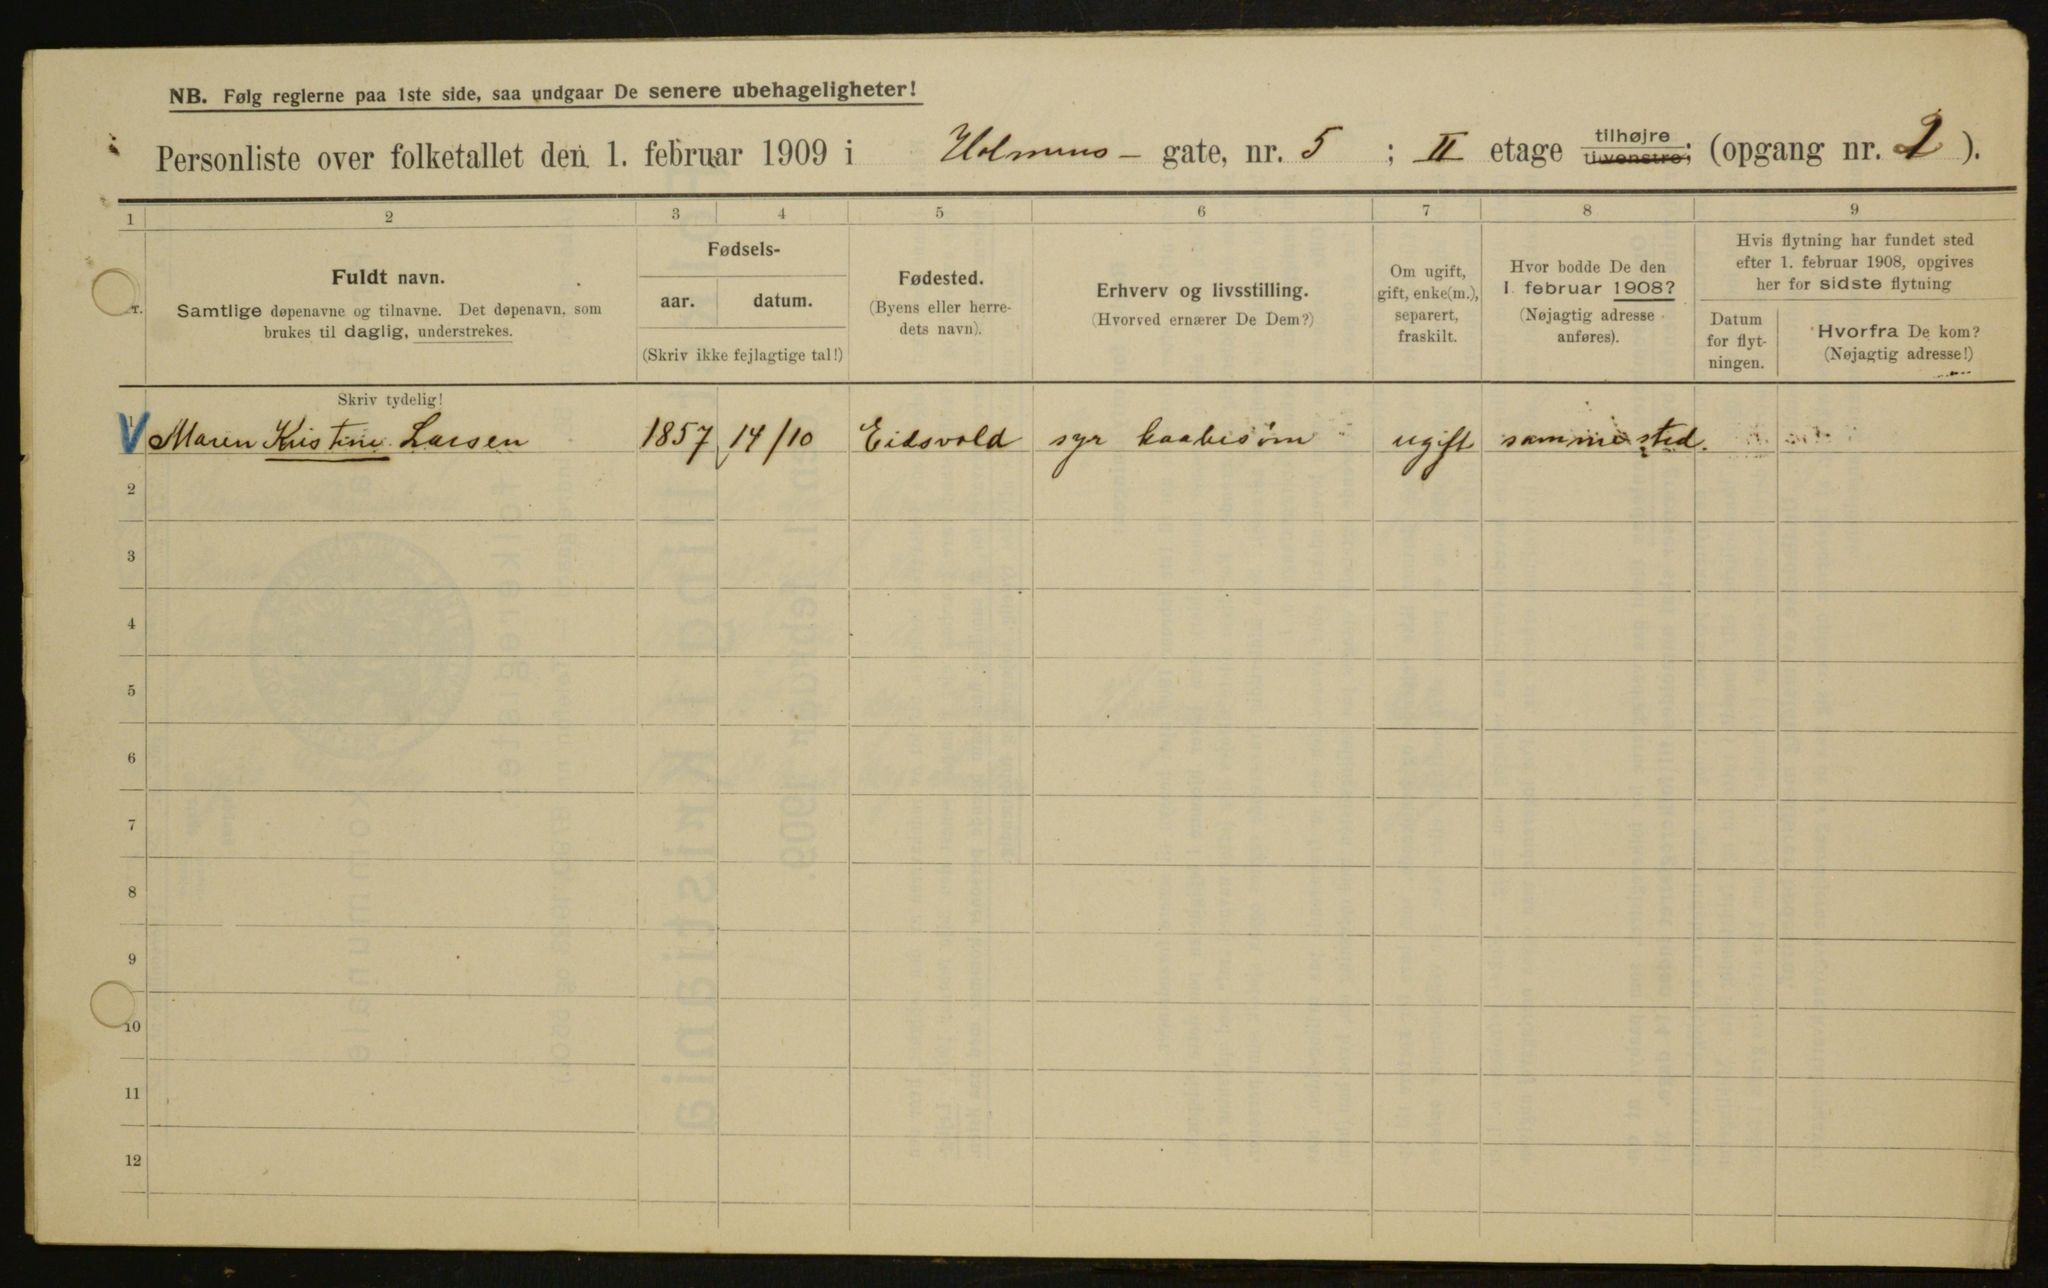 NB. Følg reglerne paa 1ste side, saa undgaar De senere ubehageligheter!
Personliste over folketallet den 1. februar 1909 i Holmens- gate, nr. 5 ; II etage tilhøjre tilvenstre; (opgang nr. 2 ).
1 2 3 4 5 6 7 8 9
Fuldt navn.
Samtlige døpenavne og tilnavne. Det døpenavn, som
brukes til daglig, understrekes.
Fødsels-
aar. datum.
(Skriv ikke fejlagtige tal!)
Fødested.
(Byens eller herre-
dets navn).
Erhverv og livsstilling.
(Hvorved ernærer De Dem?)
Om ugift,
gift, enke(m.),
separert,
fraskilt.
Hvor bodde De den
1. februar 1908?
(Nøjagtig adresse
anføres).
Hvis flytning har fundet sted
efter 1. februar 1908, opgives
her for sidste flytning
Datum
for flyt-
ningen.
Hvorfra De kom?
(Nøjagtig adresse!)
Skriv tydelig!
1 Maren Kristine Larsen 1857 14/10 Eidsvold syr kaabesøm ugift samme sted.
2
3
4
5
6
7
8
9
10
11
12